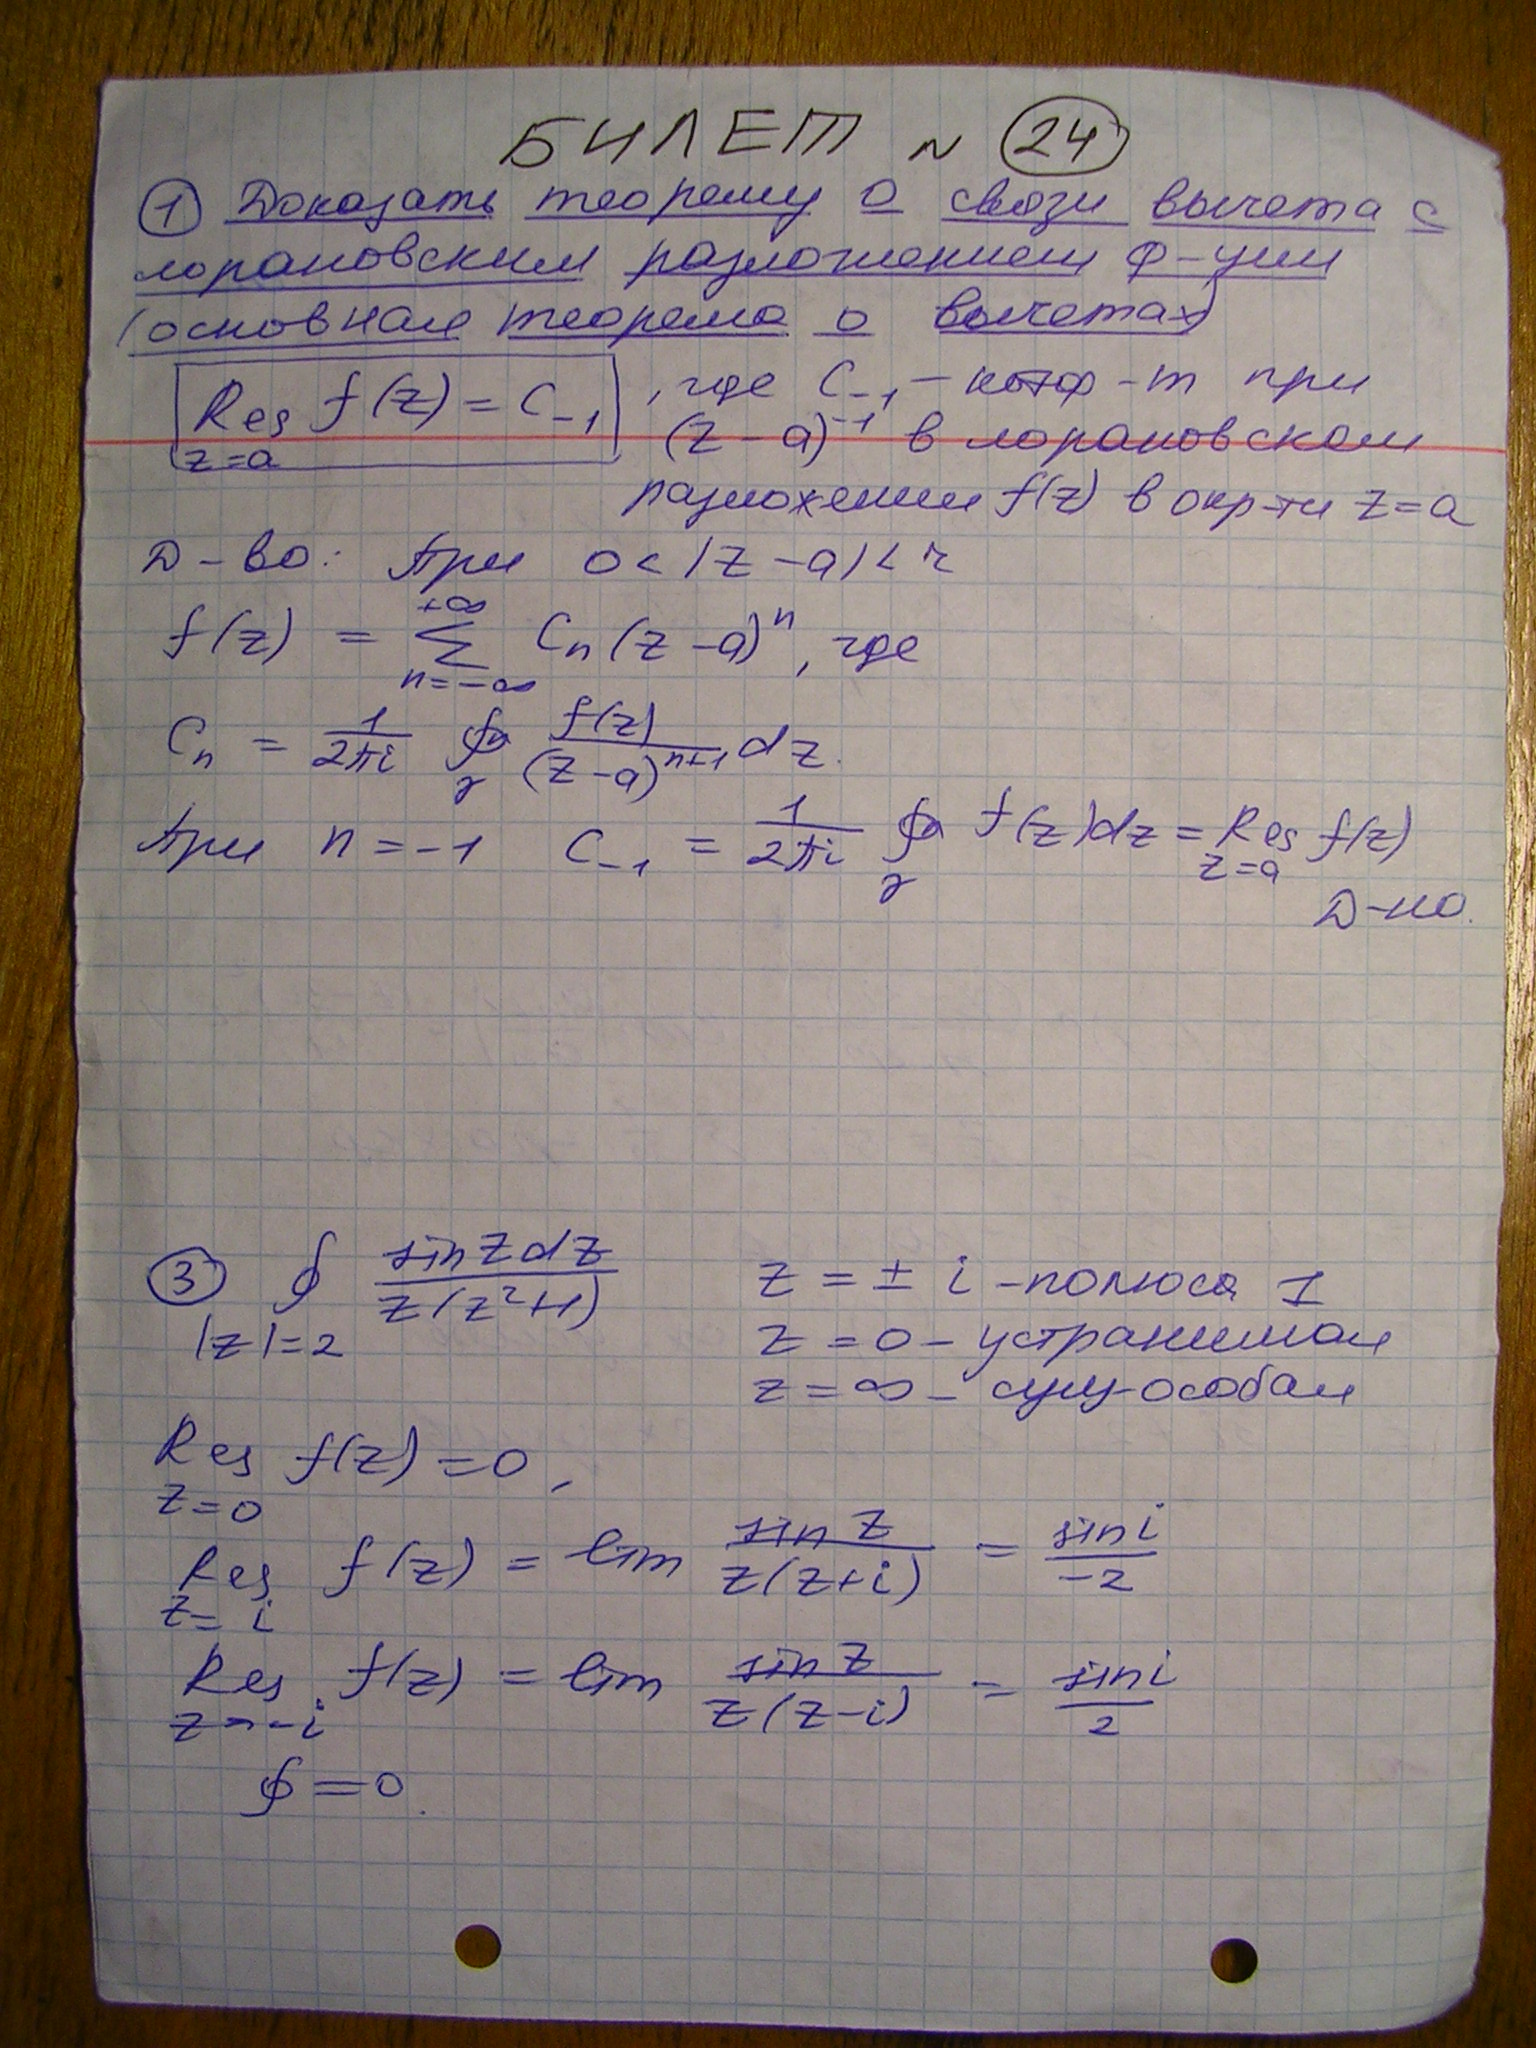 БИЛЕТ N 24
1 Доказать теорему о связи вычета с
лорановским разложением ф-ции
(основная теорема о вычетах)
Res f(z) = C₋₁ , где C₋₁ – коэф-т при
z=a (z-a)⁻¹ в лорановском
разложении f(z) в окр-ти z=a
Д-во: При 0<|z-a|<r
+∞
f(z) = Σ Cn(z-a)ⁿ, где
n=-∞
Cn = 1/2πi ∮γ f(z)/(z-a)ⁿ⁺¹ dz.
При n=-1 C₋₁ = 1/2πi ∮γ f(z)dz = Res f(z)
z=a
Д-но.
3 ∮ sinzdz/z(z²+1) z = ± i – полюса 1
|z|=2 z = 0 – устранимая
z = ∞ – сущ-особая
Res f(z) = 0,
z=0
Res f(z) = lim sin z/z(z+i) = sin i/-2
z=i
Res f(z) = lim sin z/z(z-i) = sin i/2
z=-i
∮ = 0.